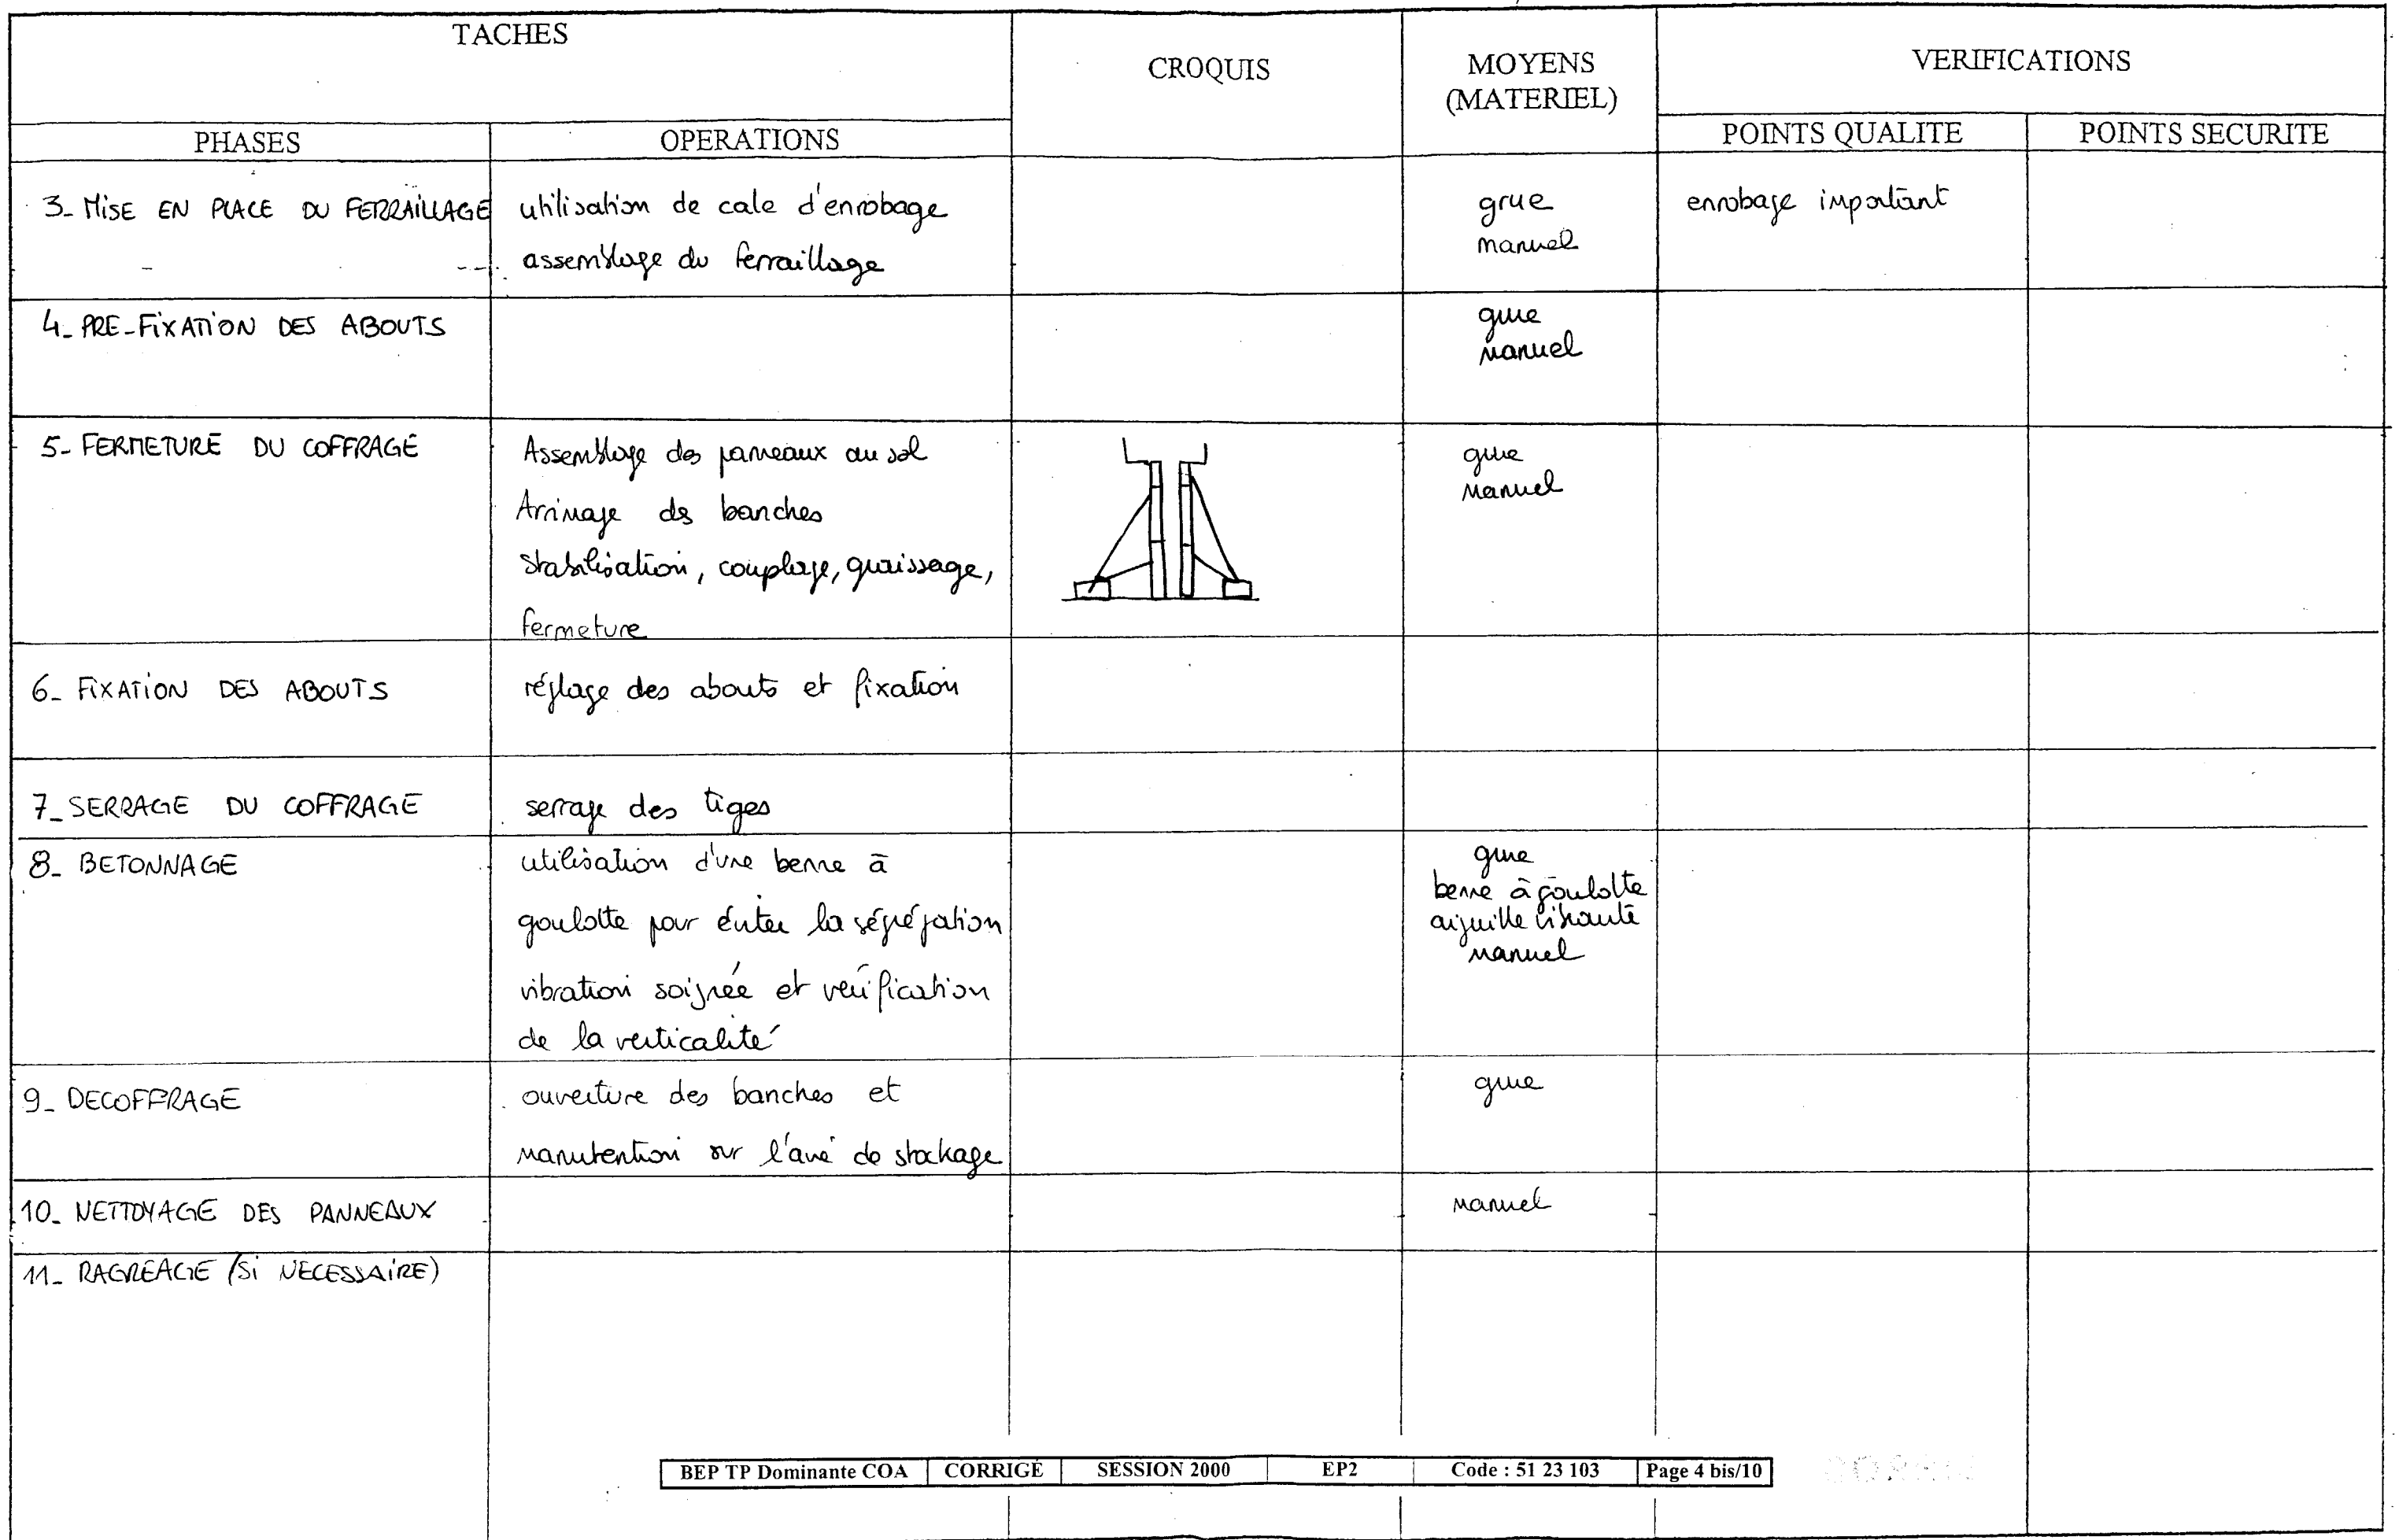 TACHES
CROQUIS
MOYENS
(MATERIEL)
VERIFICATIONS
PHASES
OPERATIONS
POINTS QUALITE
POINTS SECURITE
3_ MiSE EN PLACE DU FERRAiLLAGE
utilisation de cale d'enrobage
assemblage du ferraillage
grue
manuel
enrobage important
4_ PRE-FiXATiON DES ABOUTS
grue
manuel
5- FERMETURE DU COFFRAGE
Assemblage des panneaux au sol
Arrimage des banches
stabilisation, couplage, graissage,
fermeture
grue
manuel
6_ FiXATiON DES ABOUTS
réglage des abouts et fixation
7_ SERRAGE DU COFFRAGE
serrage des tiges
8_ BETONNAGE
utilisation d'une benne à
goulotte pour éviter la ségrégation
vibration soignée et vérification
de la verticalité
grue
benne à goulotte
aiguille vibrante
manuel
9_ DECOFFRAGE
ouverture des banches et
manutention sur l'aire de stockage
grue
10_ NETTOYAGE DES PANNEAUX
manuel
11_ RAGREAGE (Si NECESSAiRE)
BEP TP Dominante COA CORRIGÉ SESSION 2000 EP2 Code : 51 23 103 Page 4 bis/10